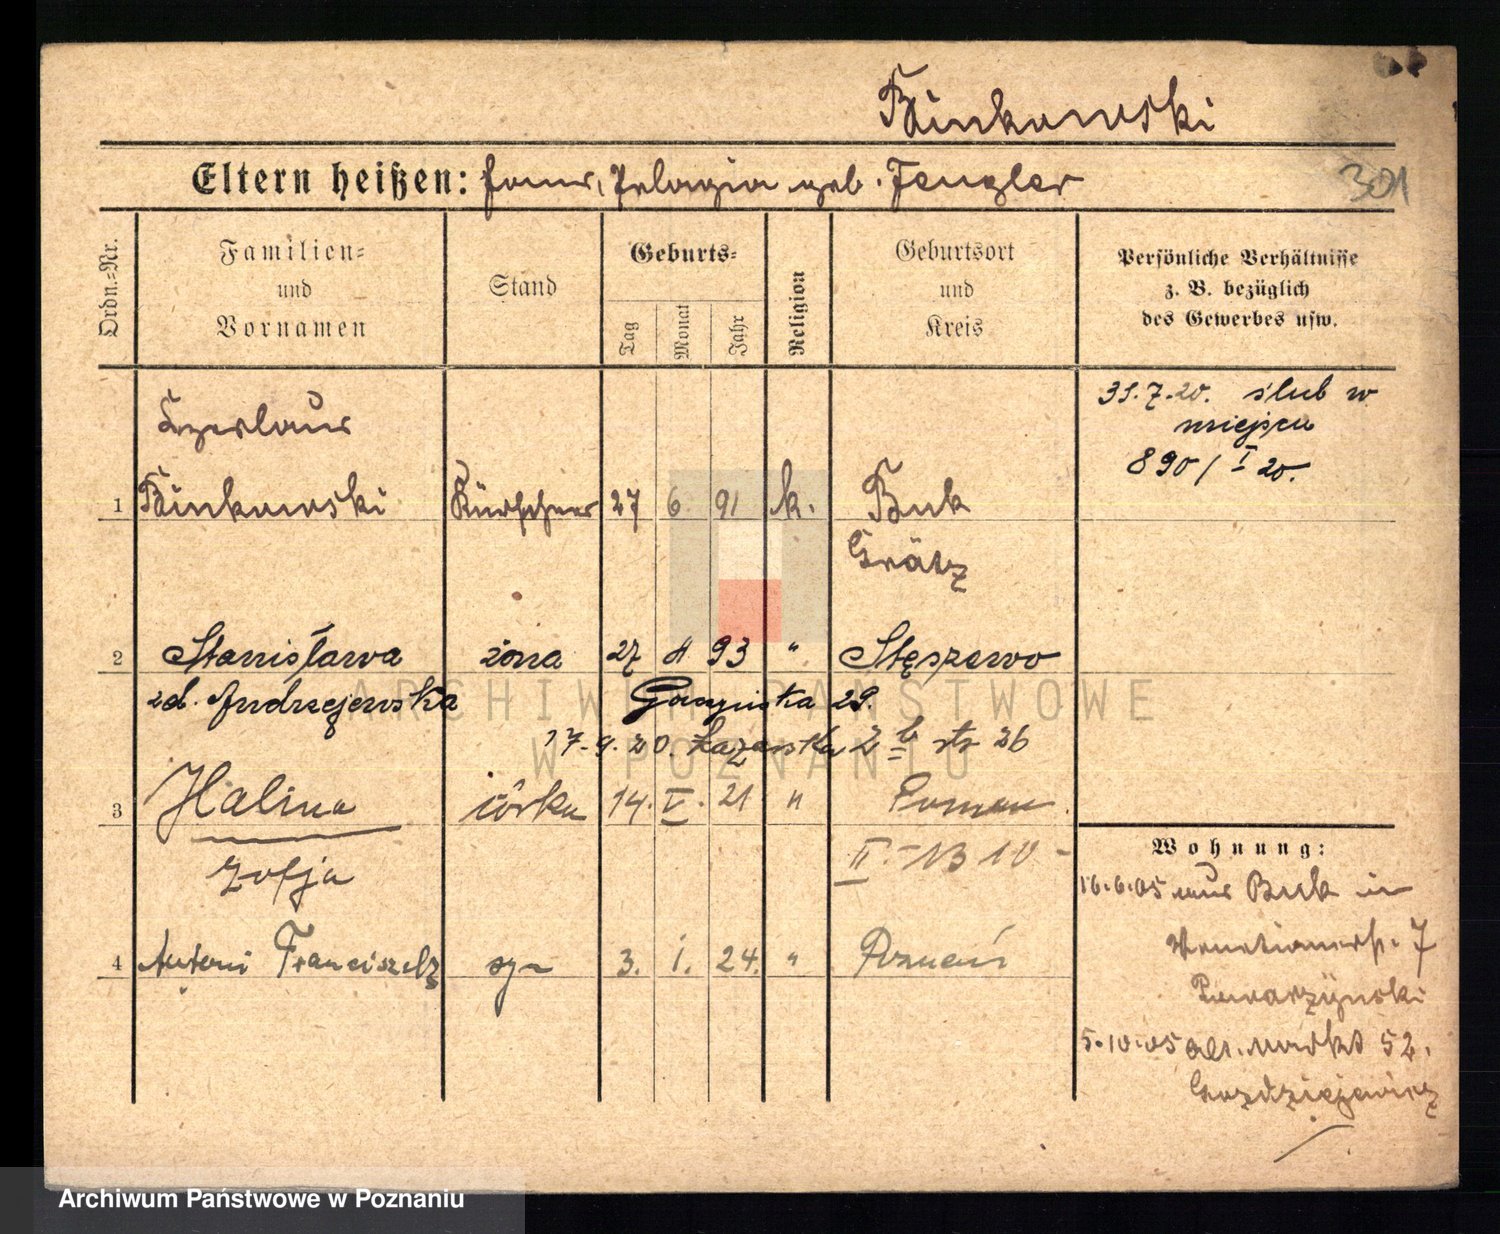 Binkowski
Eltern heißen: Franz, Pelagia geb. Fengler
301
Ordn.=Nr.
Familien=
und
Vornamen
Stand
Geburts=
Tag
Monat
Jahr
Religion
Geburtsort
und
Kreis
Persönliche Verhältnisse
z. B. bezüglich
des Gewerbes usw.
31.7.20. ślub w
miejscu
890/I 20.
1 Binkowski Kürschner 27 6 91 k. Buk
Grätz
2 Stanisława żona 27 4 93 " Stęszewo
zd. Andrzejewska 29.
17.9.20. Łazarska 2 b str 26
3 Halina córka 14. V. 21 "
Zofja
II.
4 Antoni Franciszek syn 3. I. 24. " Poznań
Wohnung:
16.6.05 aus Buk in
Venetianerstr. 7
5.10.05 Alt. Markt 52.
Gozdziejewicz
ARCHIWUM PAŃSTWOWE
W POZNANIU
Archiwum Państwowe w Poznaniu